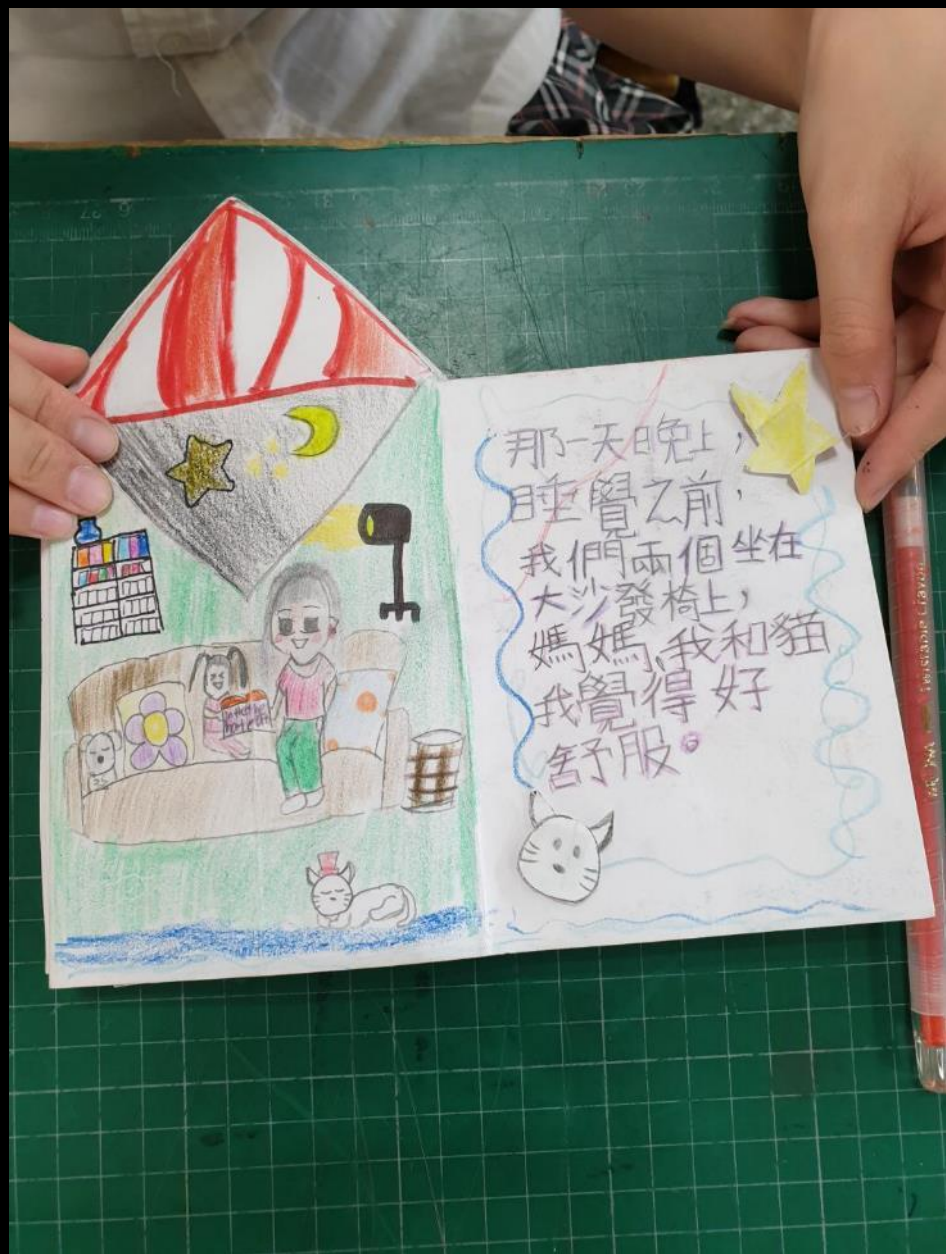 那一天晚上，
睡覺之前，
我們兩個坐在
大沙發椅上，
媽媽、我和貓
我覺得好
舒服。
Twistable Crayon